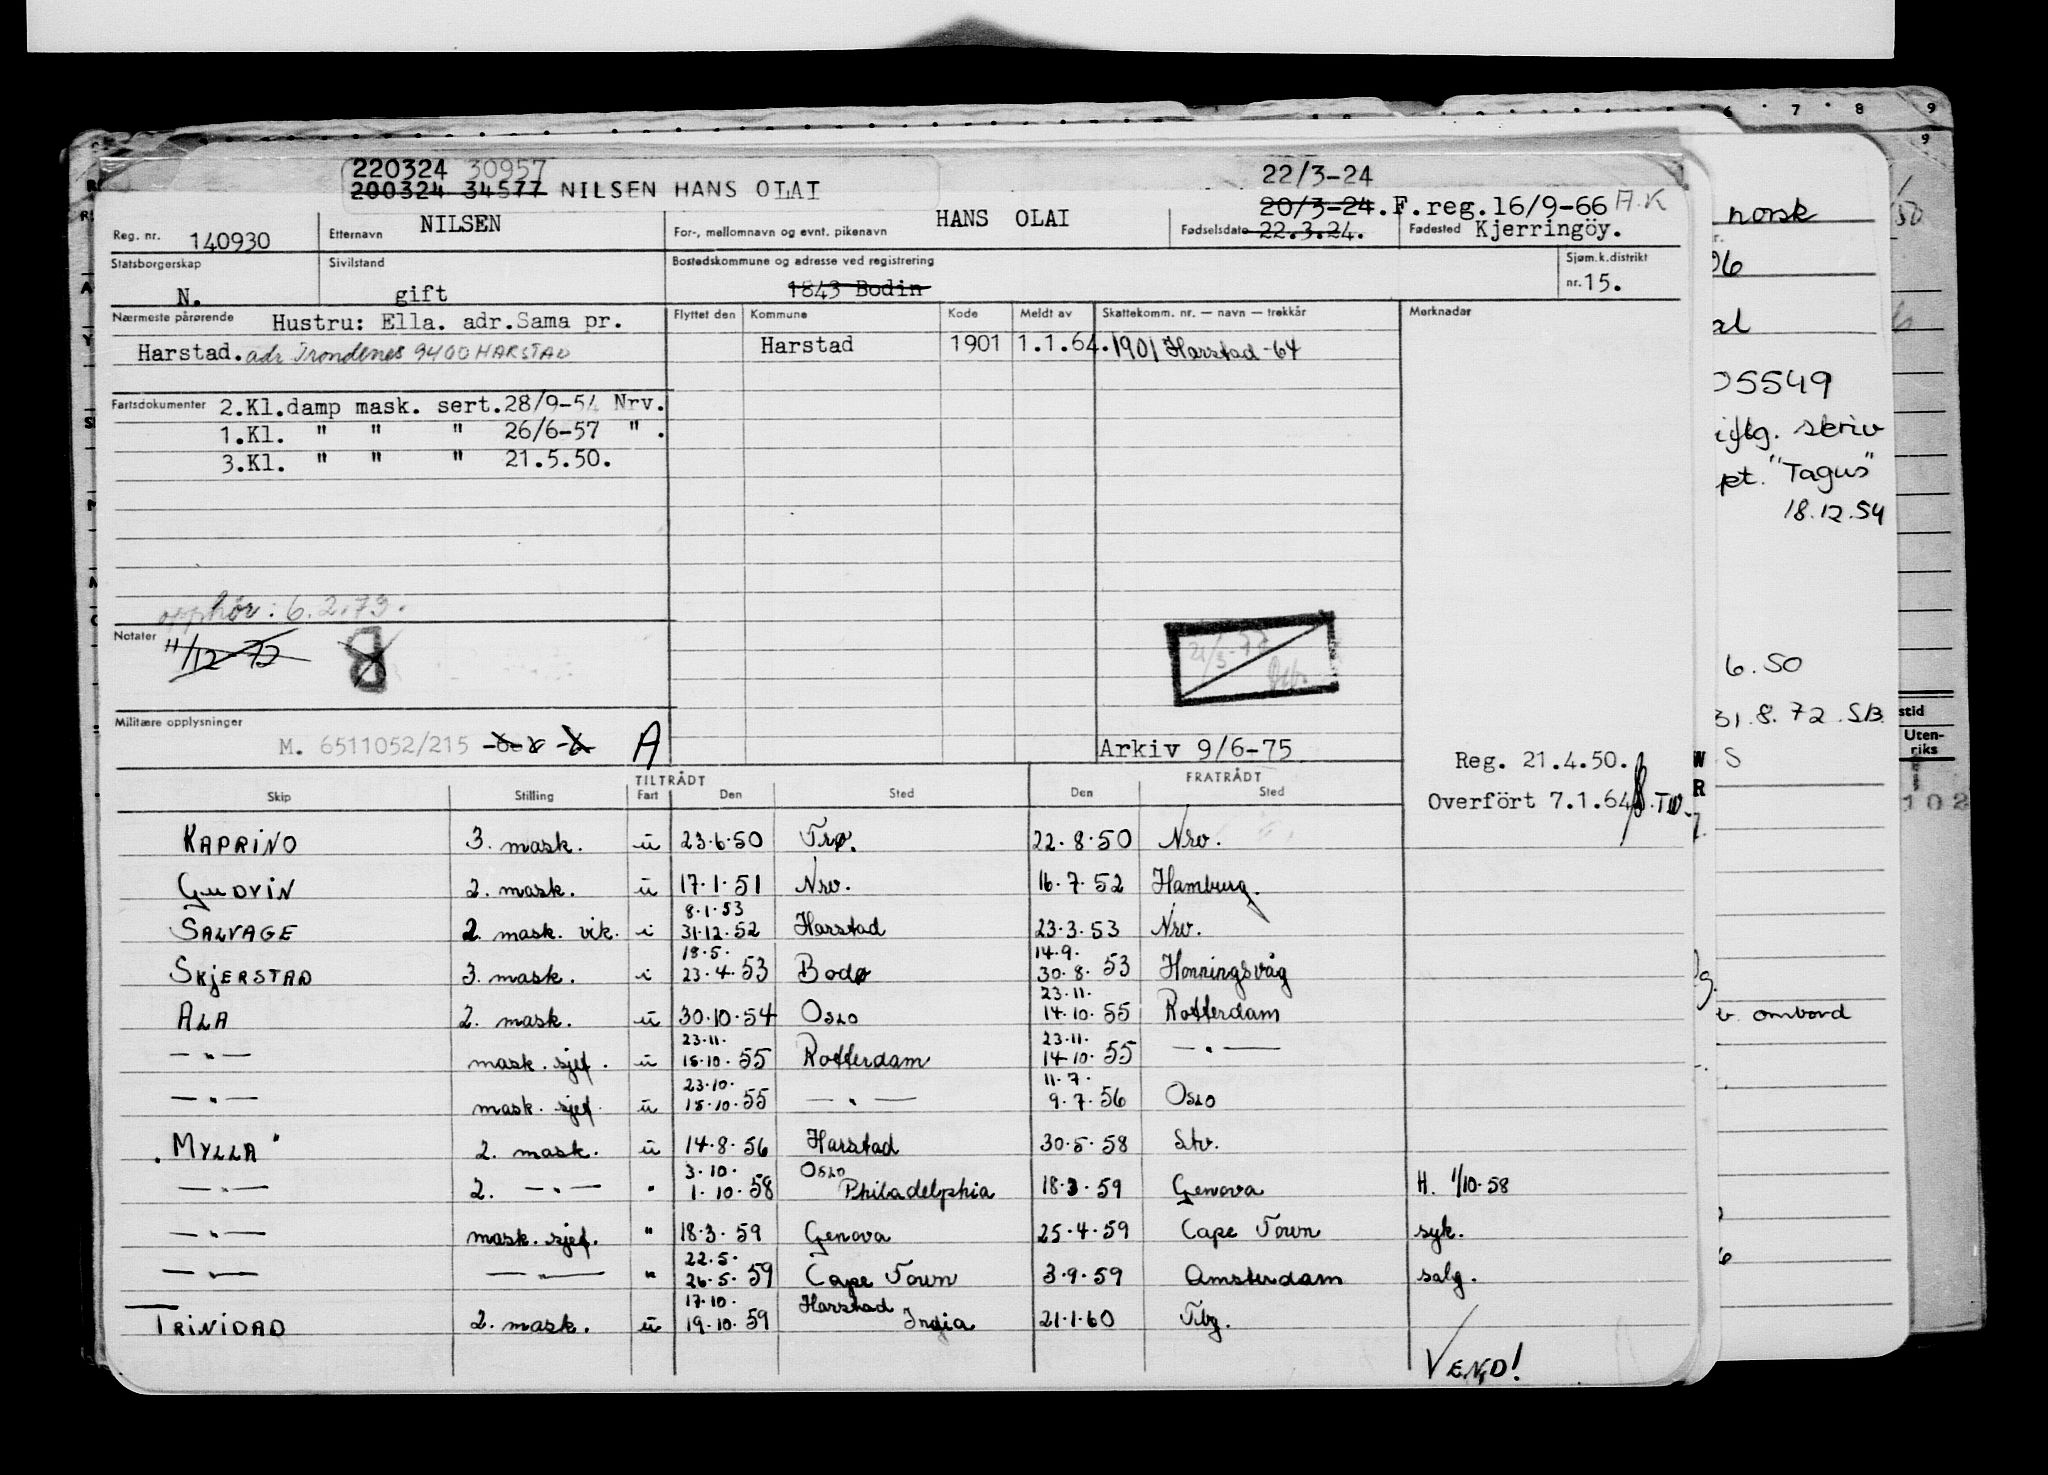 220324 30957
200324 34577 NILSEN HANS OLAI
22/3-24
20/3-24. F.reg.16/9-66 A.K
Reg. nr. 140930 Etternavn NILSEN For-, mellomnavn og evnt. pikenavn HANS OLAI Fødselsdato 22.3.24. Fødested Kjerringöy.
Statsborgerskap Sivilstand Bostedskommune og adresse ved registrering Sjøm.k.distrikt
N. gift 1843 Bodin nr. 15.
Nærmeste pårørende Hustru: Ella. adr.Sama pr.
Harstad. adr Trondenes 9400 HARSTAD
Flyttet den Kommune Kode Meldt av Skattekomm. nr. — navn — trekkår Merknader
Harstad 1901 1.1.64. 1901 Harstad -64
Fartsdokumenter 2.Kl.damp mask. sert.28/9-54 Nrv.
1.Kl. " " " 26/6-57 " .
3.Kl. " " " 21.5.50.
opphør: 6.2.79.
Notater 11/12-72 8
21/3-77
Militære opplysninger
M. 6511052/215 A
Arkiv 9/6-75
Reg. 21.4.50.
Overfört 7.1.64
TILTRÅDT FRATRÅDT
Skip Stilling Fart Den Sted Den Sted
KAPRINO 3. mask. u 23.6.50 Trø. 22.8.50 Nrv.
GUDVIN 2. mask. u 17.1.51 Nrv. 16.7.52 Hamburg.
8.1.53
SALVAGE 2. mask. vik. i 31.12.52 Harstad 23.3.53 Nrv.
18.5. 14.9.
SKJERSTAD 3. mask. i 23.4.53 Bodø 30.8.53 Honningsvåg
23.11.
ALA 2. mask. u 30.10.54 Oslo 14.10.55 Rotterdam
23.11. 23.11.
— " — mask. sjef. u 15.10.55 Rotterdam 14.10.55 — " —
23.10. 11.7.
— " — mask. sjef. u 15.10.55 — " — 9.7.56 Oslo
"MYLLA" 2. mask. u 14.8.56 Harstad 30.5.58 Stv.
3.10. Oslo
— " — 2. — " — " 1.10.58 Philadelphia 18.3.59 Genova H. 1/10-58
— " — mask. sjef. " 18.3.59 Genova 25.4.59 Cape Town syk.
22.5.
— " — — " — " 26.5.59 Cape Town 3.9.59 Amsterdam salg.
17.10. Harstad
TRINIDAD 2. mask. u 19.10.59 Ingia 21.1.60 Tbg.
VEND!
6 7 8 9
9
norsk
05549
skriv
"Tagus"
18.12.54
6.50
31.8.72 SB.
S
ombord
stid
Uten-
riks
102